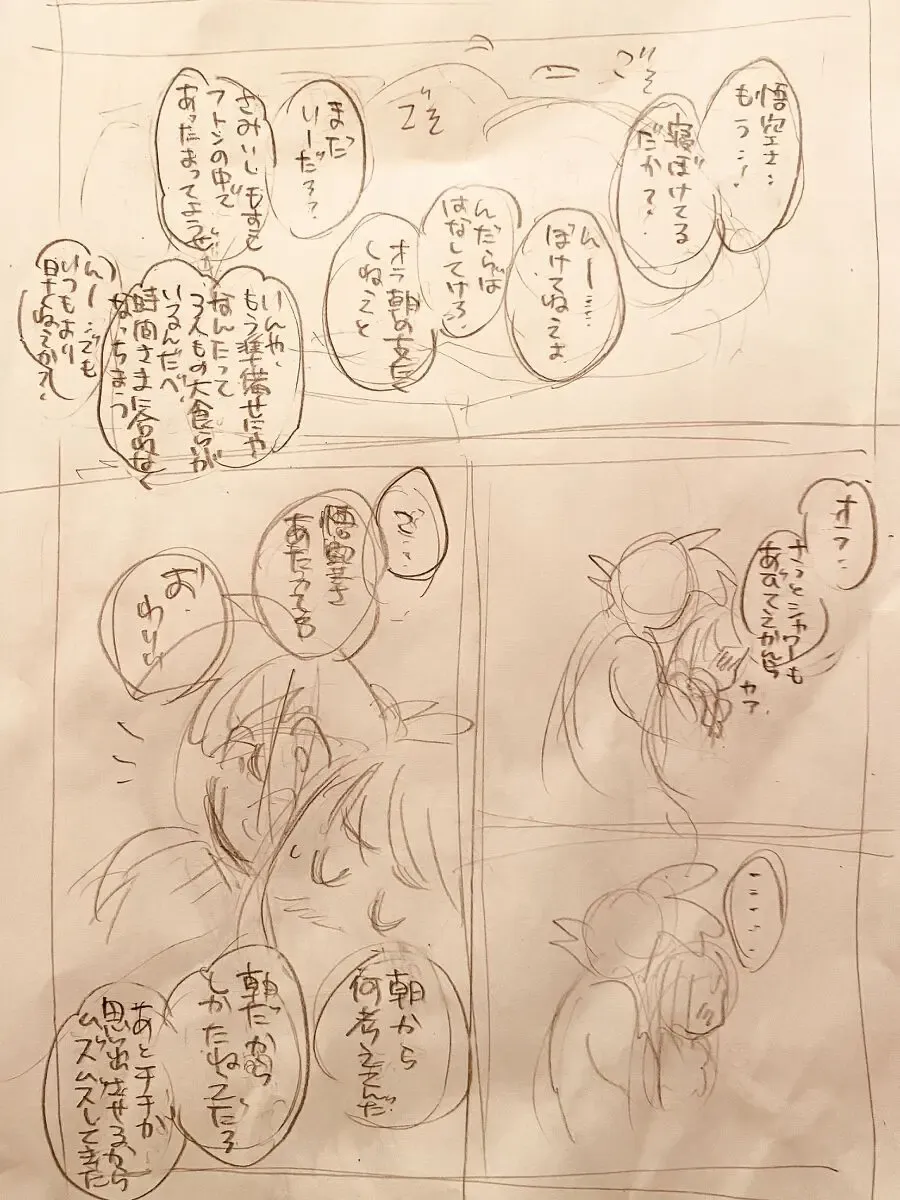 悟空さ…
もう…!
寝ぼけてる
だか?
ごそ
ごそ
んー…
ぼけてねえよ
んだらば
はなしてけろ
オラ朝の支度
しねえと
まだ
いーだろ?
さみいしもすこし
フトンの中で
あったまってようぜ
いんや、
もう準備せにゃ
なんたって
3人もの大食らいが
いるんだべ
時間さまに合わなく
なっちまう
んー…でも
いつもより
早くねえか?
オラ…
さっとシャワーも
あびてえから
カァ
……
ご…
悟空さ
あたってる
お
わりい
朝から
何考えてんだ
朝だから
しかたねえだろ
あとチチが
思い出させるから
ムズムズしてきた